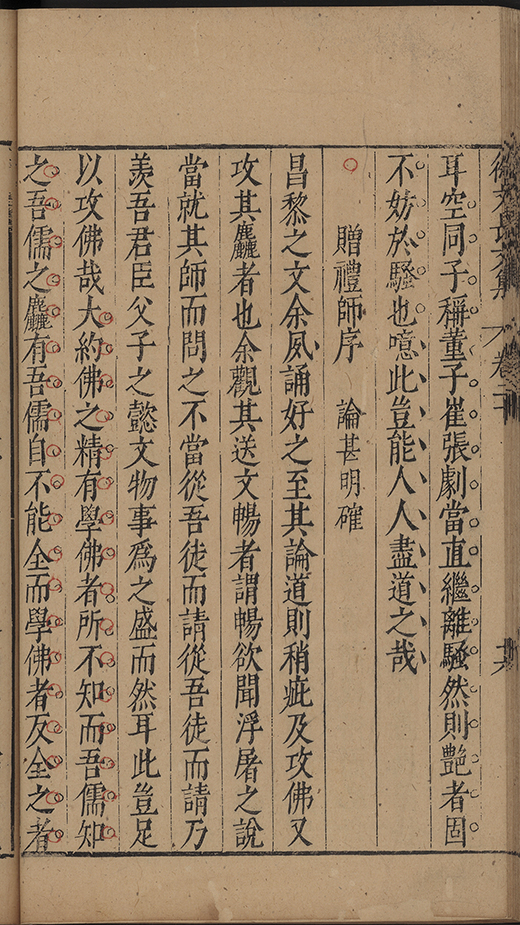 徐文長文集 卷二十 六
耳空同子稱董子崔張劇當直繼離騷然則艷者固
不妨於騷也噫此豈能人人盡道之哉
贈禮師序 論甚明確
昌黎之文余夙誦好之至其論道則稍疵及攻佛又
攻其麤者也余觀其送文暢者謂暢欲聞浮屠之說
當就其師而問之不當從吾徒而請從吾徒而請乃
羨吾君臣父子之懿文物事爲之盛而然耳此豈足
以攻佛哉大約佛之精有學佛者所不知而吾儒知
之吾儒之麤有吾儒自不能全而學佛者反全之者